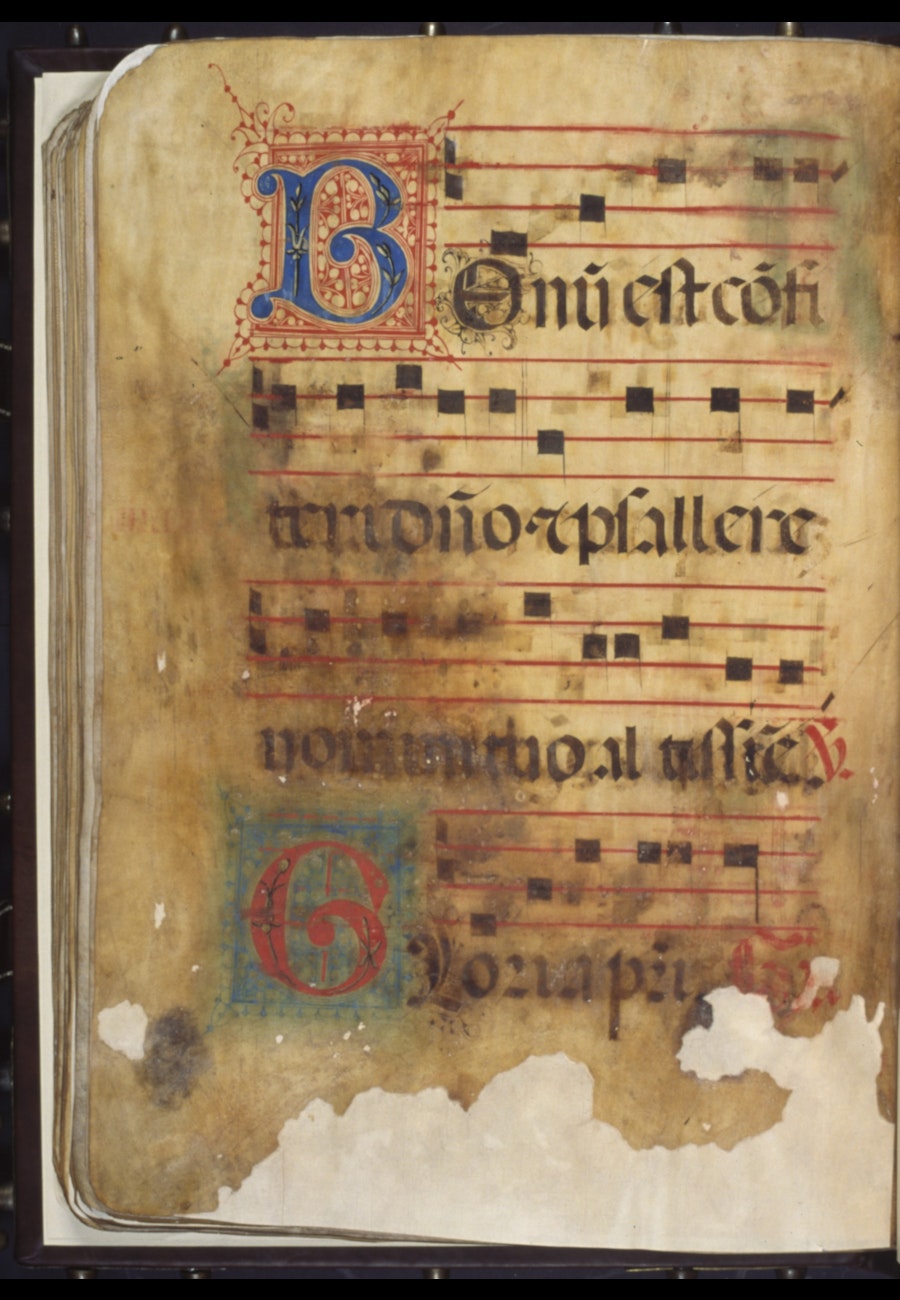 BOnū est cōfi
teri dn̄o ⁊ psallere
nomini tuo altissīe ℣.
GLoria pr̄i.